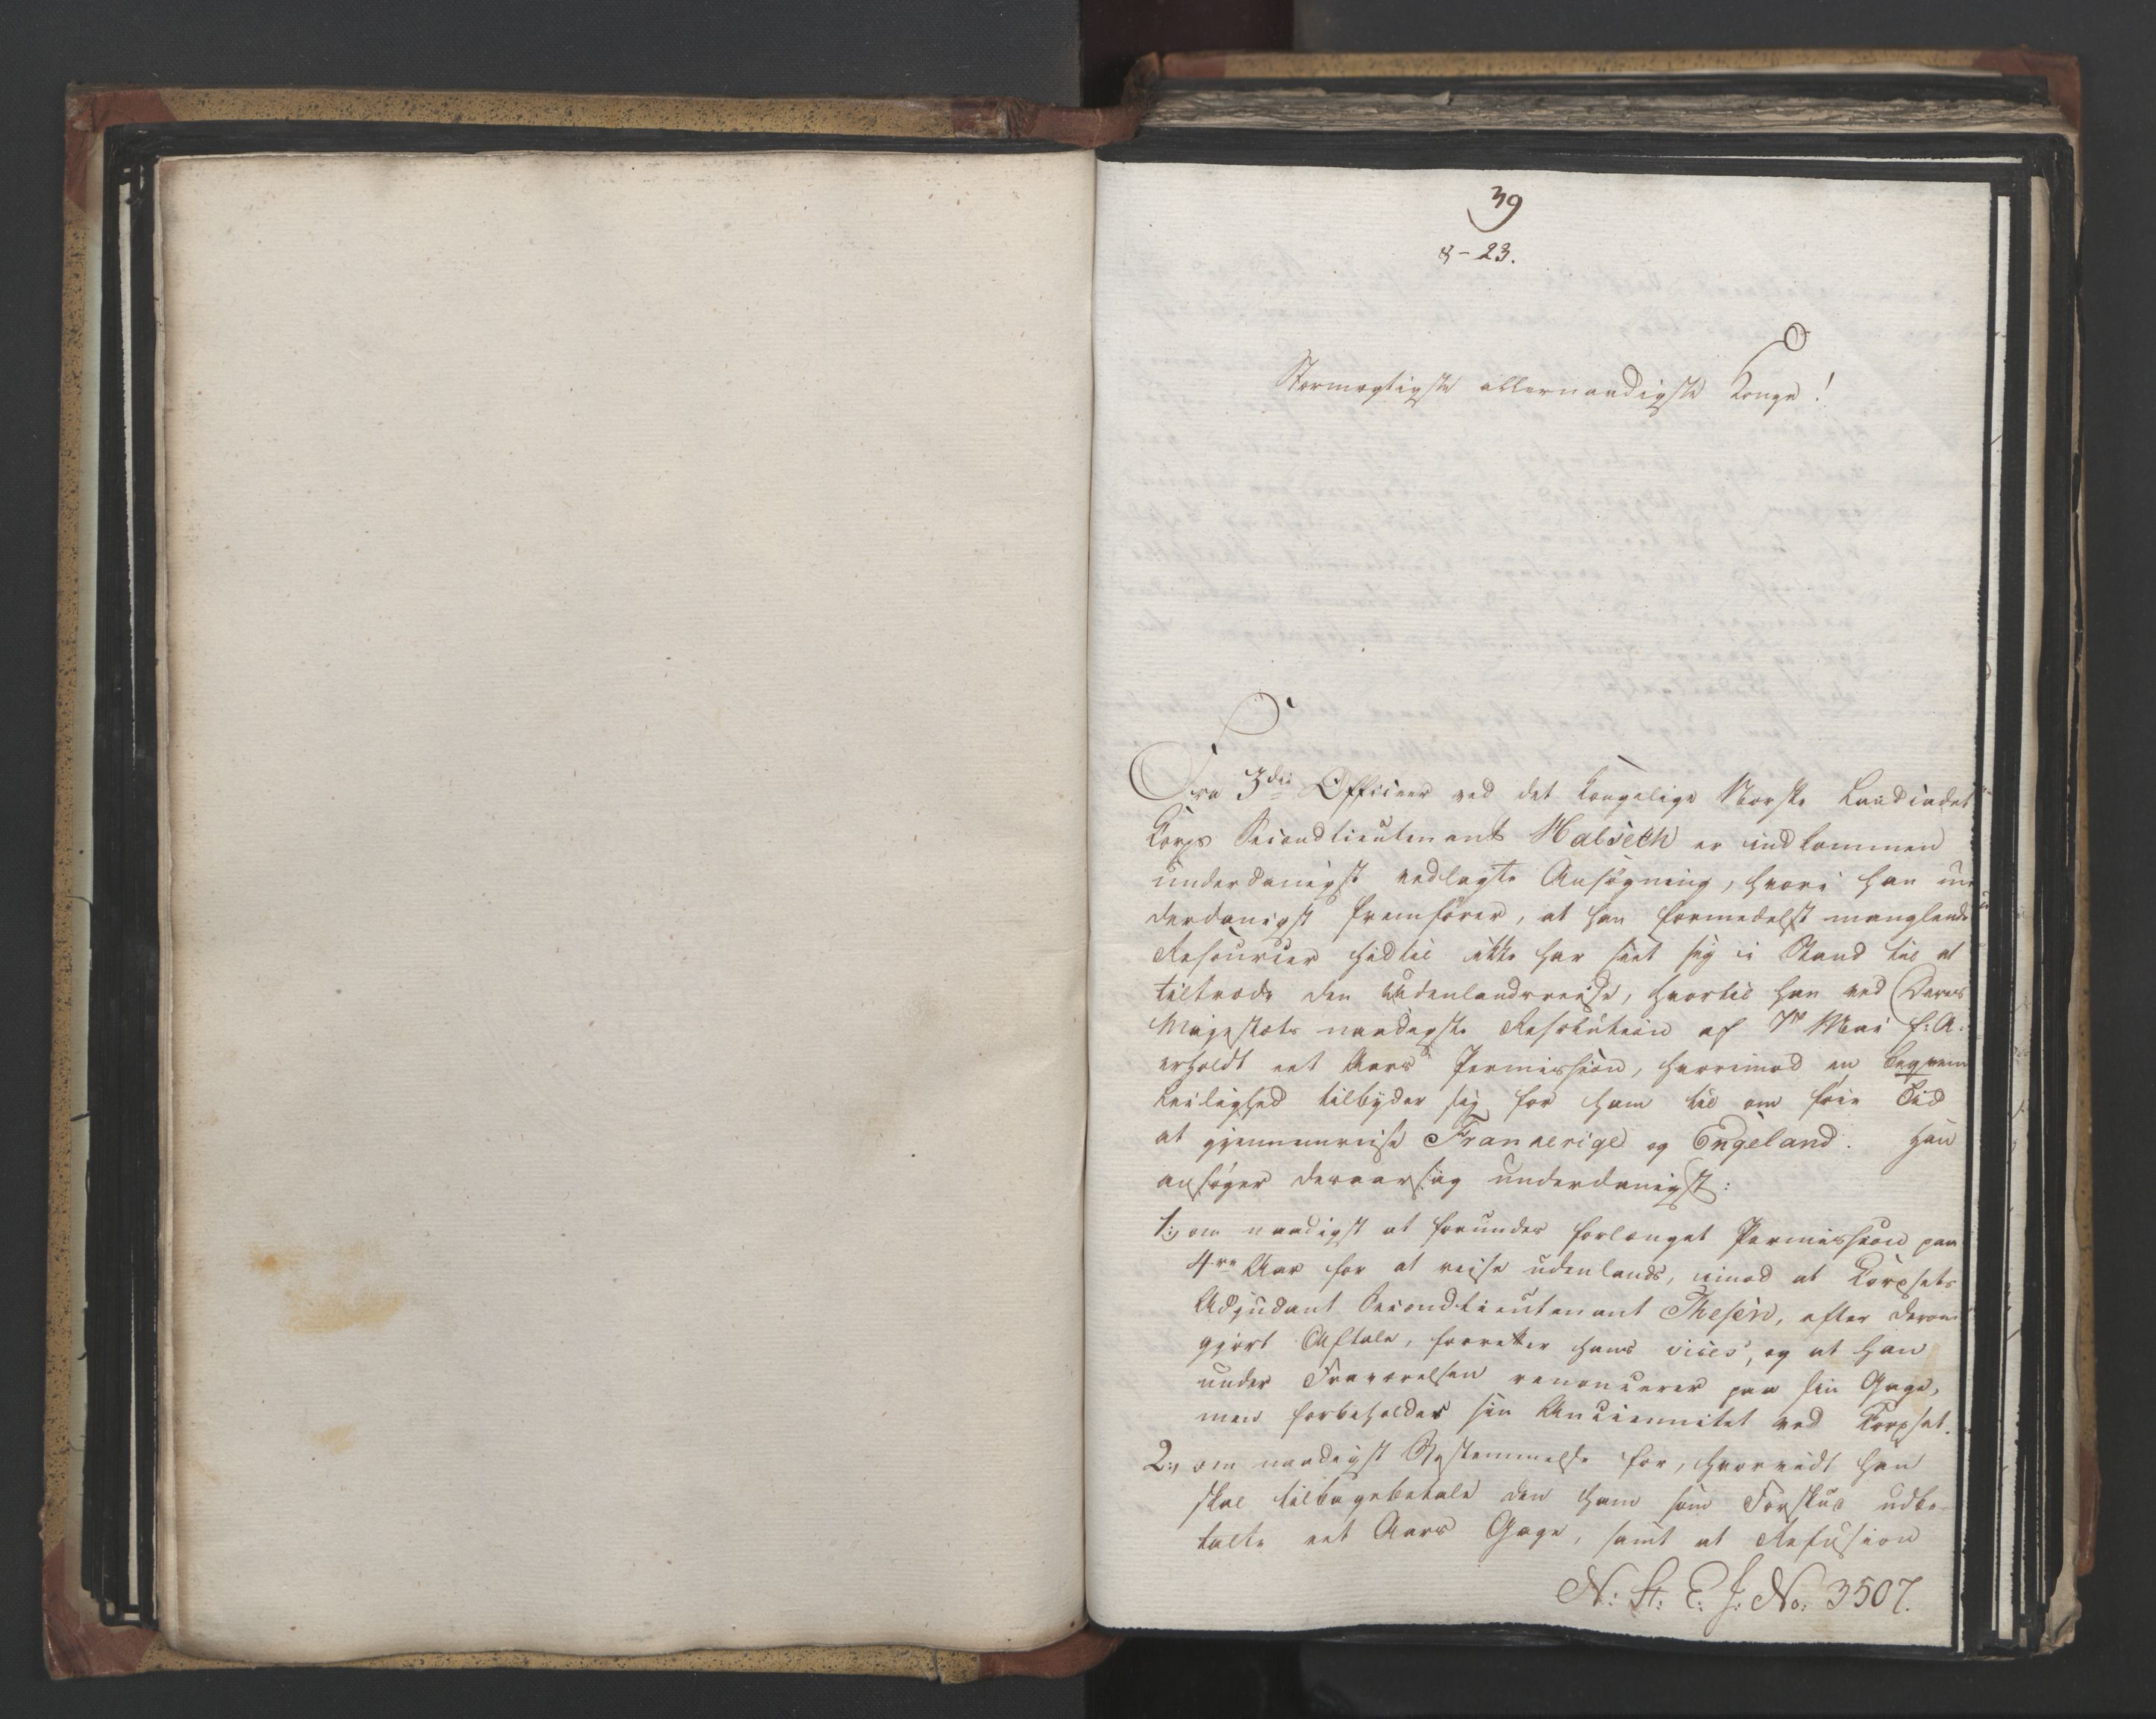 39
8-23.
Stormægtigste allernaadigste Konge!
Fra 3die Officeer ved det kongelige Norske Landcadet
Corps Secondlieutenant Halseth er indkommen
underdanigst vedlagte Ansøgning, hvori han un
derdanigst fremfører, at han formedelst manglende
Resourcer hidtil ikke har seet sig i Stand til at
tiltræde den Udenlandsreise, hvortil han ved Deres
Majestæts naadigste Resolution af 7de Mai f: A.
erholdt eet Aars Permission, hvorimod en beqvem
Leilighed tilbyder sig for ham til om føie Tid
at gjennemreise Frankerige og Engeland. Han
ansøger desaarsag underdanigst:
1:, om naadigst at forundes forlænget Permission paa
4re Aar for at reise udenlands, imod at Corpsets
Adjudant Secondlieutenant Thesen, efter derom
gjort Aftale, forretter hans vices, og at han
under Fraværelsen renoncerer paa sin Gage,
men forbeholdes sin Anciennitet ved Corpset.
2:, om naadigst Bestemmelse for, hvorvidt han
skal tilbagebetale den ham som Forskud udbe-
talte eet Aars Gage, samt at Refusion
N: St: E: J: No: 3507.